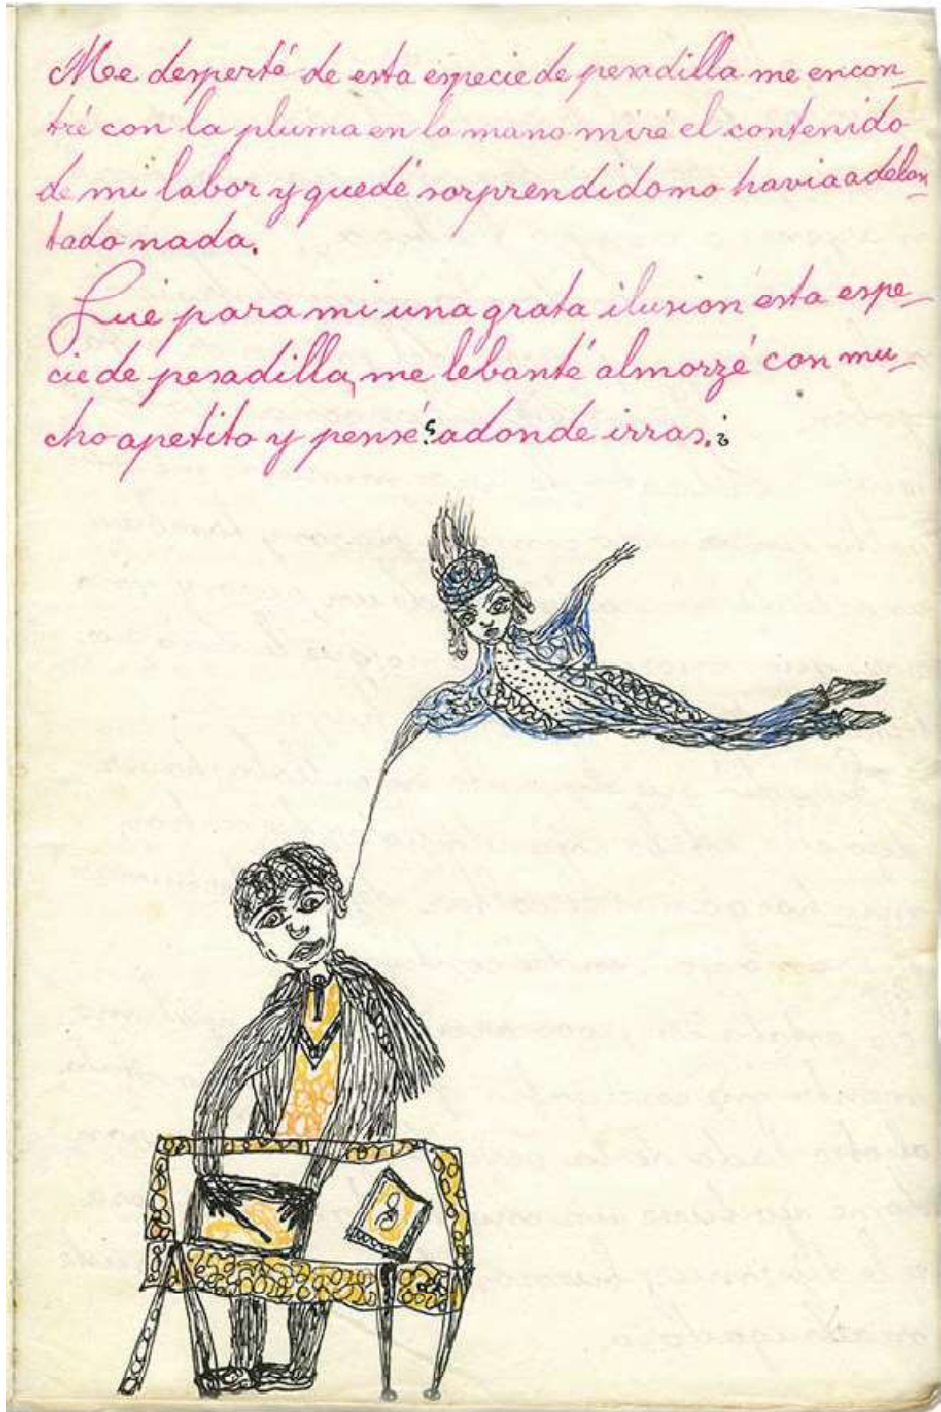 Me desperté de esta especie de pesadilla me encon-
tré con la pluma en la mano miré el contenido
de mi labor y quedé sorprendido no havia adelan-
tado nada.
Fué para mi una grata ilusion ésta espe-
cie de pesadilla, me lebanté almorzé con mu-
cho apetito y pensé ¿adonde irras.?